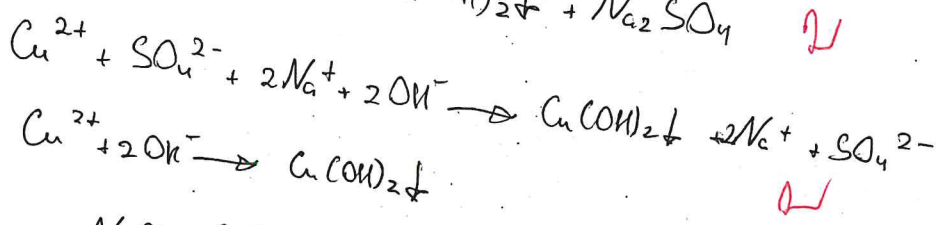 )2↓ + Na2SO4
Cu²⁺ + SO₄²⁻ + 2Na⁺ + 2OH⁻ → Cu(OH)2↓ + 2Na⁺ + SO₄²⁻
Cu²⁺ + 2OH⁻ → Cu(OH)2↓